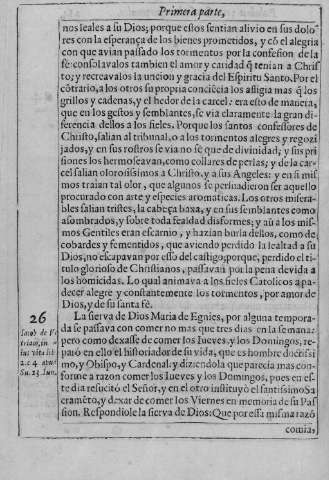 Primera parte,
nos leales a su Dios; porque estos sentian alivio en sus dolo
res con la esperança de los bienes prometidos, y cõ el alegria
con que avian passado los tormentos por la confession de la
fè: consolavalos tambien el amor y caridad q̃ tenian a Chris
to; y recreavalos la uncion y gracia del Espiritu Santo. Por el
cõtrario, a los otros su propria conciẽcia los afligia mas q̃ los
grillos y cadenas, y el hedor de la carcel: era esto de manera,
que en los gestos y semblantes, se via claramente la gran di-
ferencia dellos a los fieles. Porque los santos confessores de
Christo, salian al tribunal, o a los tormentos alegres y regozi
jados, y en sus rostros se via no sè que de divinidad; y sus pri
siones los hermoseavan, como collares de perlas; y de la car-
cel salian olorosissimos a Christo, y a sus Angeles: y en si mis
mos traian tal olor, que algunos se persuadieron ser aquello
procurado con arte y especies aromaticas. Los otros misera-
bles salian tristes, la cabeça baxa, y en sus semblantes como
asombrados, y sobre toda fealdad disformes; y aũ a los mis-
mos Gentiles eran escarnio, y hazian burla dellos, como de
cobardes y fementidos, que aviendo perdido la lealtad a su
Dios, no escapavan por esso del castigo; porque, perdido el ti-
tulo glorioso de Christianos, passavan por la pena devida a
los homicidas. Lo qual animava a los fieles Catolicos a pa-
decer alegre y constantemente los tormentos, por amor de
Dios, y de su santa fè.
26
La sierva de Dios Maria de Egnies, por alguna tempora-
da se passava con comer no mas que tres dias en la semana:
pero como dexasse de comer los Iueves, y los Domingos, re-
parò en ello el historiador de su vida, que es hombre doctissi
mo, y Obispo, y Cardenal: y diziendola que parecia mas con-
forme a razon comer los Iueves y los Domingos, pues en es-
te dia resucitò el Señor, y en el otro instituyò el santissimo Sa
cramẽto, y dexar de comer los Viernes en memoria de su Pas
sion. Respondiole la sierva de Dios: Que por essa misma razõ
comia,
Iacob de Vi
triaco, in
ius vita lib
2. c. 4
Su. 23. Iun.